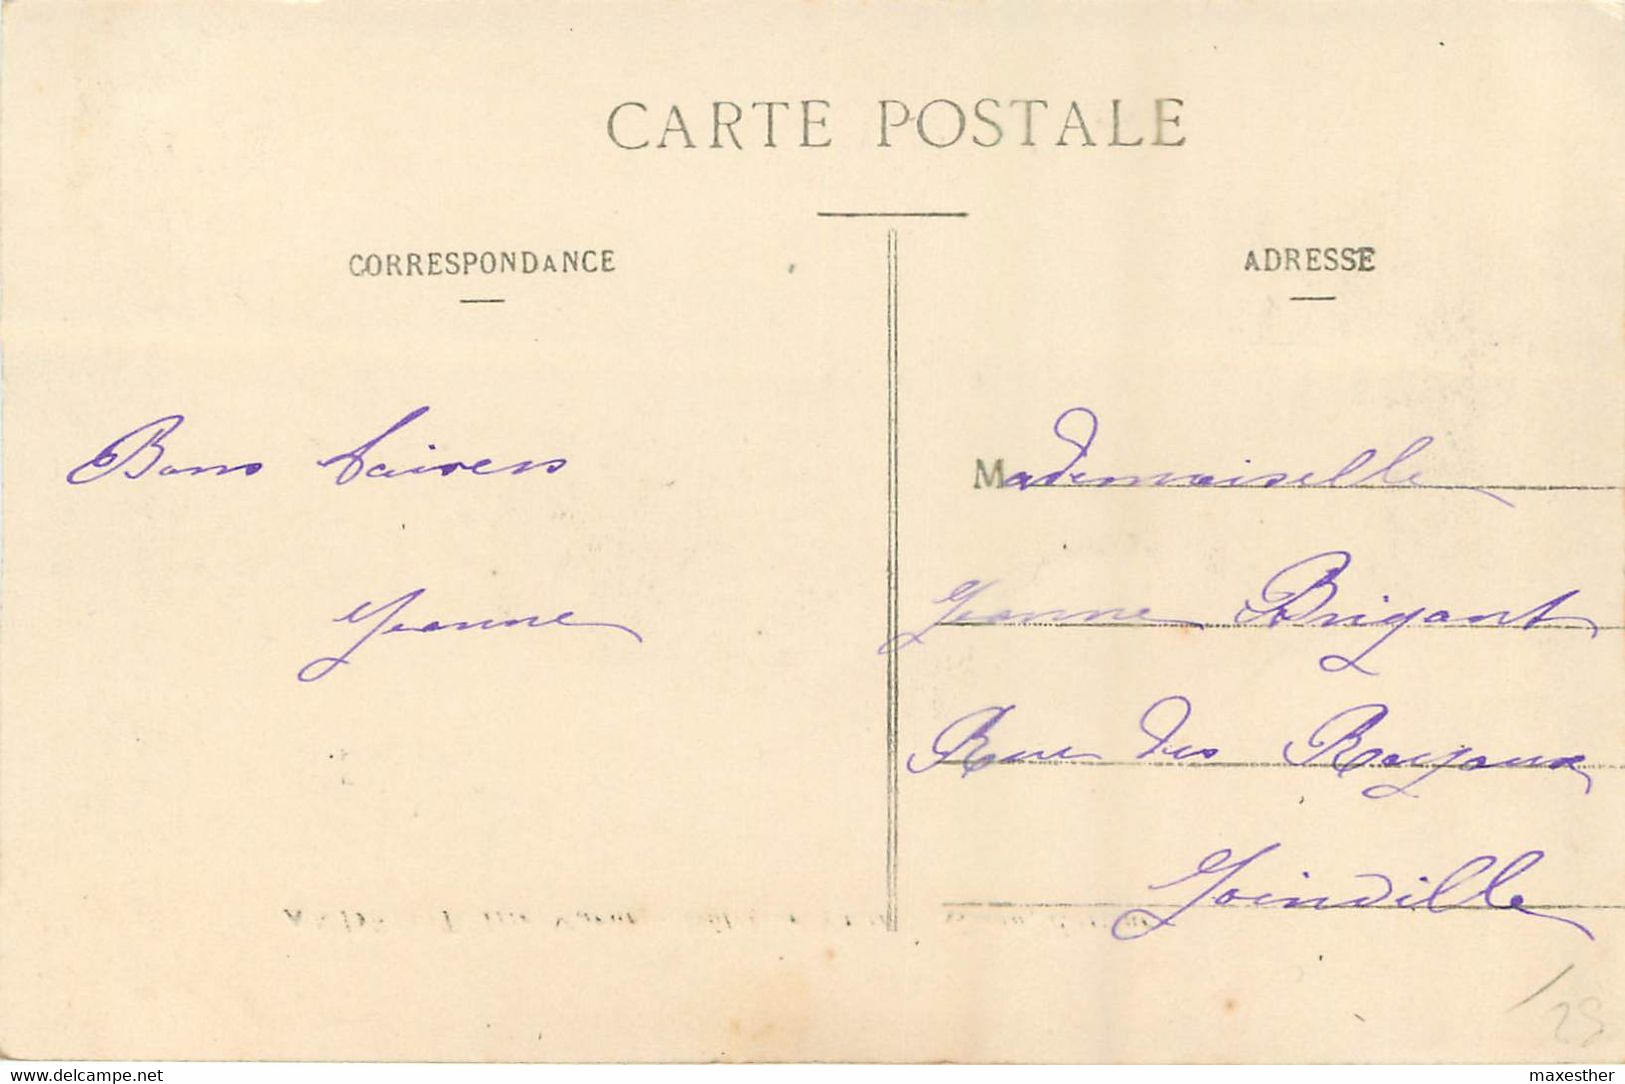 CARTE POSTALE
CORRESPONDANCE
ADRESSE
Bons baisers
Jeanne
Mademoiselle
Jeanne Brigant
Rue des Royaux
Joinville
/25
www.delcampe.net
maxesther